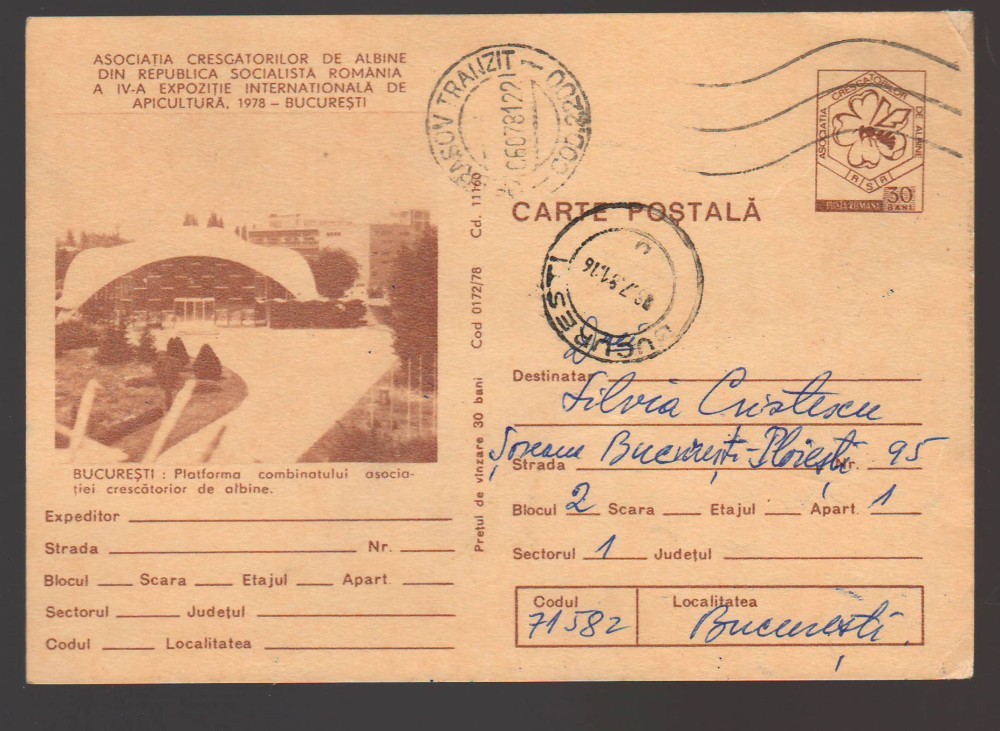 ASOCIAȚIA CRESCĂTORILOR DE ALBINE
DIN REPUBLICA SOCIALISTĂ ROMÂNIA
A IV-A EXPOZIȚIE INTERNAȚIONALĂ DE
APICULTURĂ, 1978 – BUCUREȘTI
BRAȘOV TRANZIT
COD 2200
ASOCIAȚIA CRESCĂTORILOR DE ALBINE
RSR
POȘTA ROMÂNĂ
30 BANI
CARTE POȘTALĂ
BUCUREȘTI
BUCUREȘTI : Platforma combinatului asocia-
ției crescătorior de albine.
Expeditor
Strada Nr.
Blocul Scara Etajul Apart.
Sectorul Județul
Codul Localitatea
Prețul de vînzare 30 bani Cod 0172/78 Cd. 11160
Destinatar
Silvia Cristescu
Strada Șoseaua București-Ploiești Nr. 95
Blocul 2 Scara Etajul Apart. 1
Sectorul 1 Județul
Codul Localitatea
71582 București